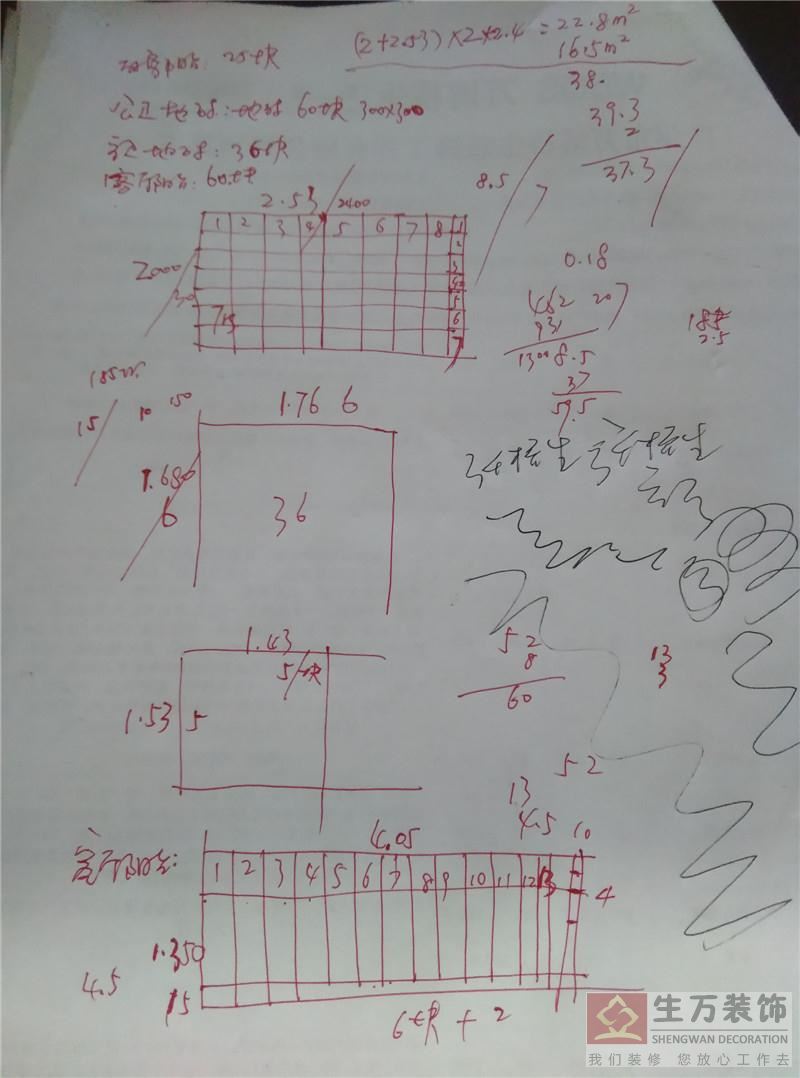 (2+2.53)×2×2.4=22.8m²
16.5m²
38.
阳台: 25块
公卫地砖: 地砖 60块 300×300
主卫地砖: 36块
客厅阳台: 60块
39.3
2
37.3
8.5
7
2.53
2400
1 2 3 4 5 6 7 8 1
2
3
4
5
6
7
2000
30
0.18
462 207
931
1300 8.5
37
59.5
2.5
15 10 150
1.76 6
1.680
6
36
3
1.43
5块
1.53 5
52
8
60
13
3
52
13
4.5
10
客厅阳台:
4.05
1 2 3 4 5 6 7 8 9 10 11 12 13
4
1.350
4.5
15
6块+2
生万装饰
SHENGWAN DECORATION
我们装修 您放心工作去